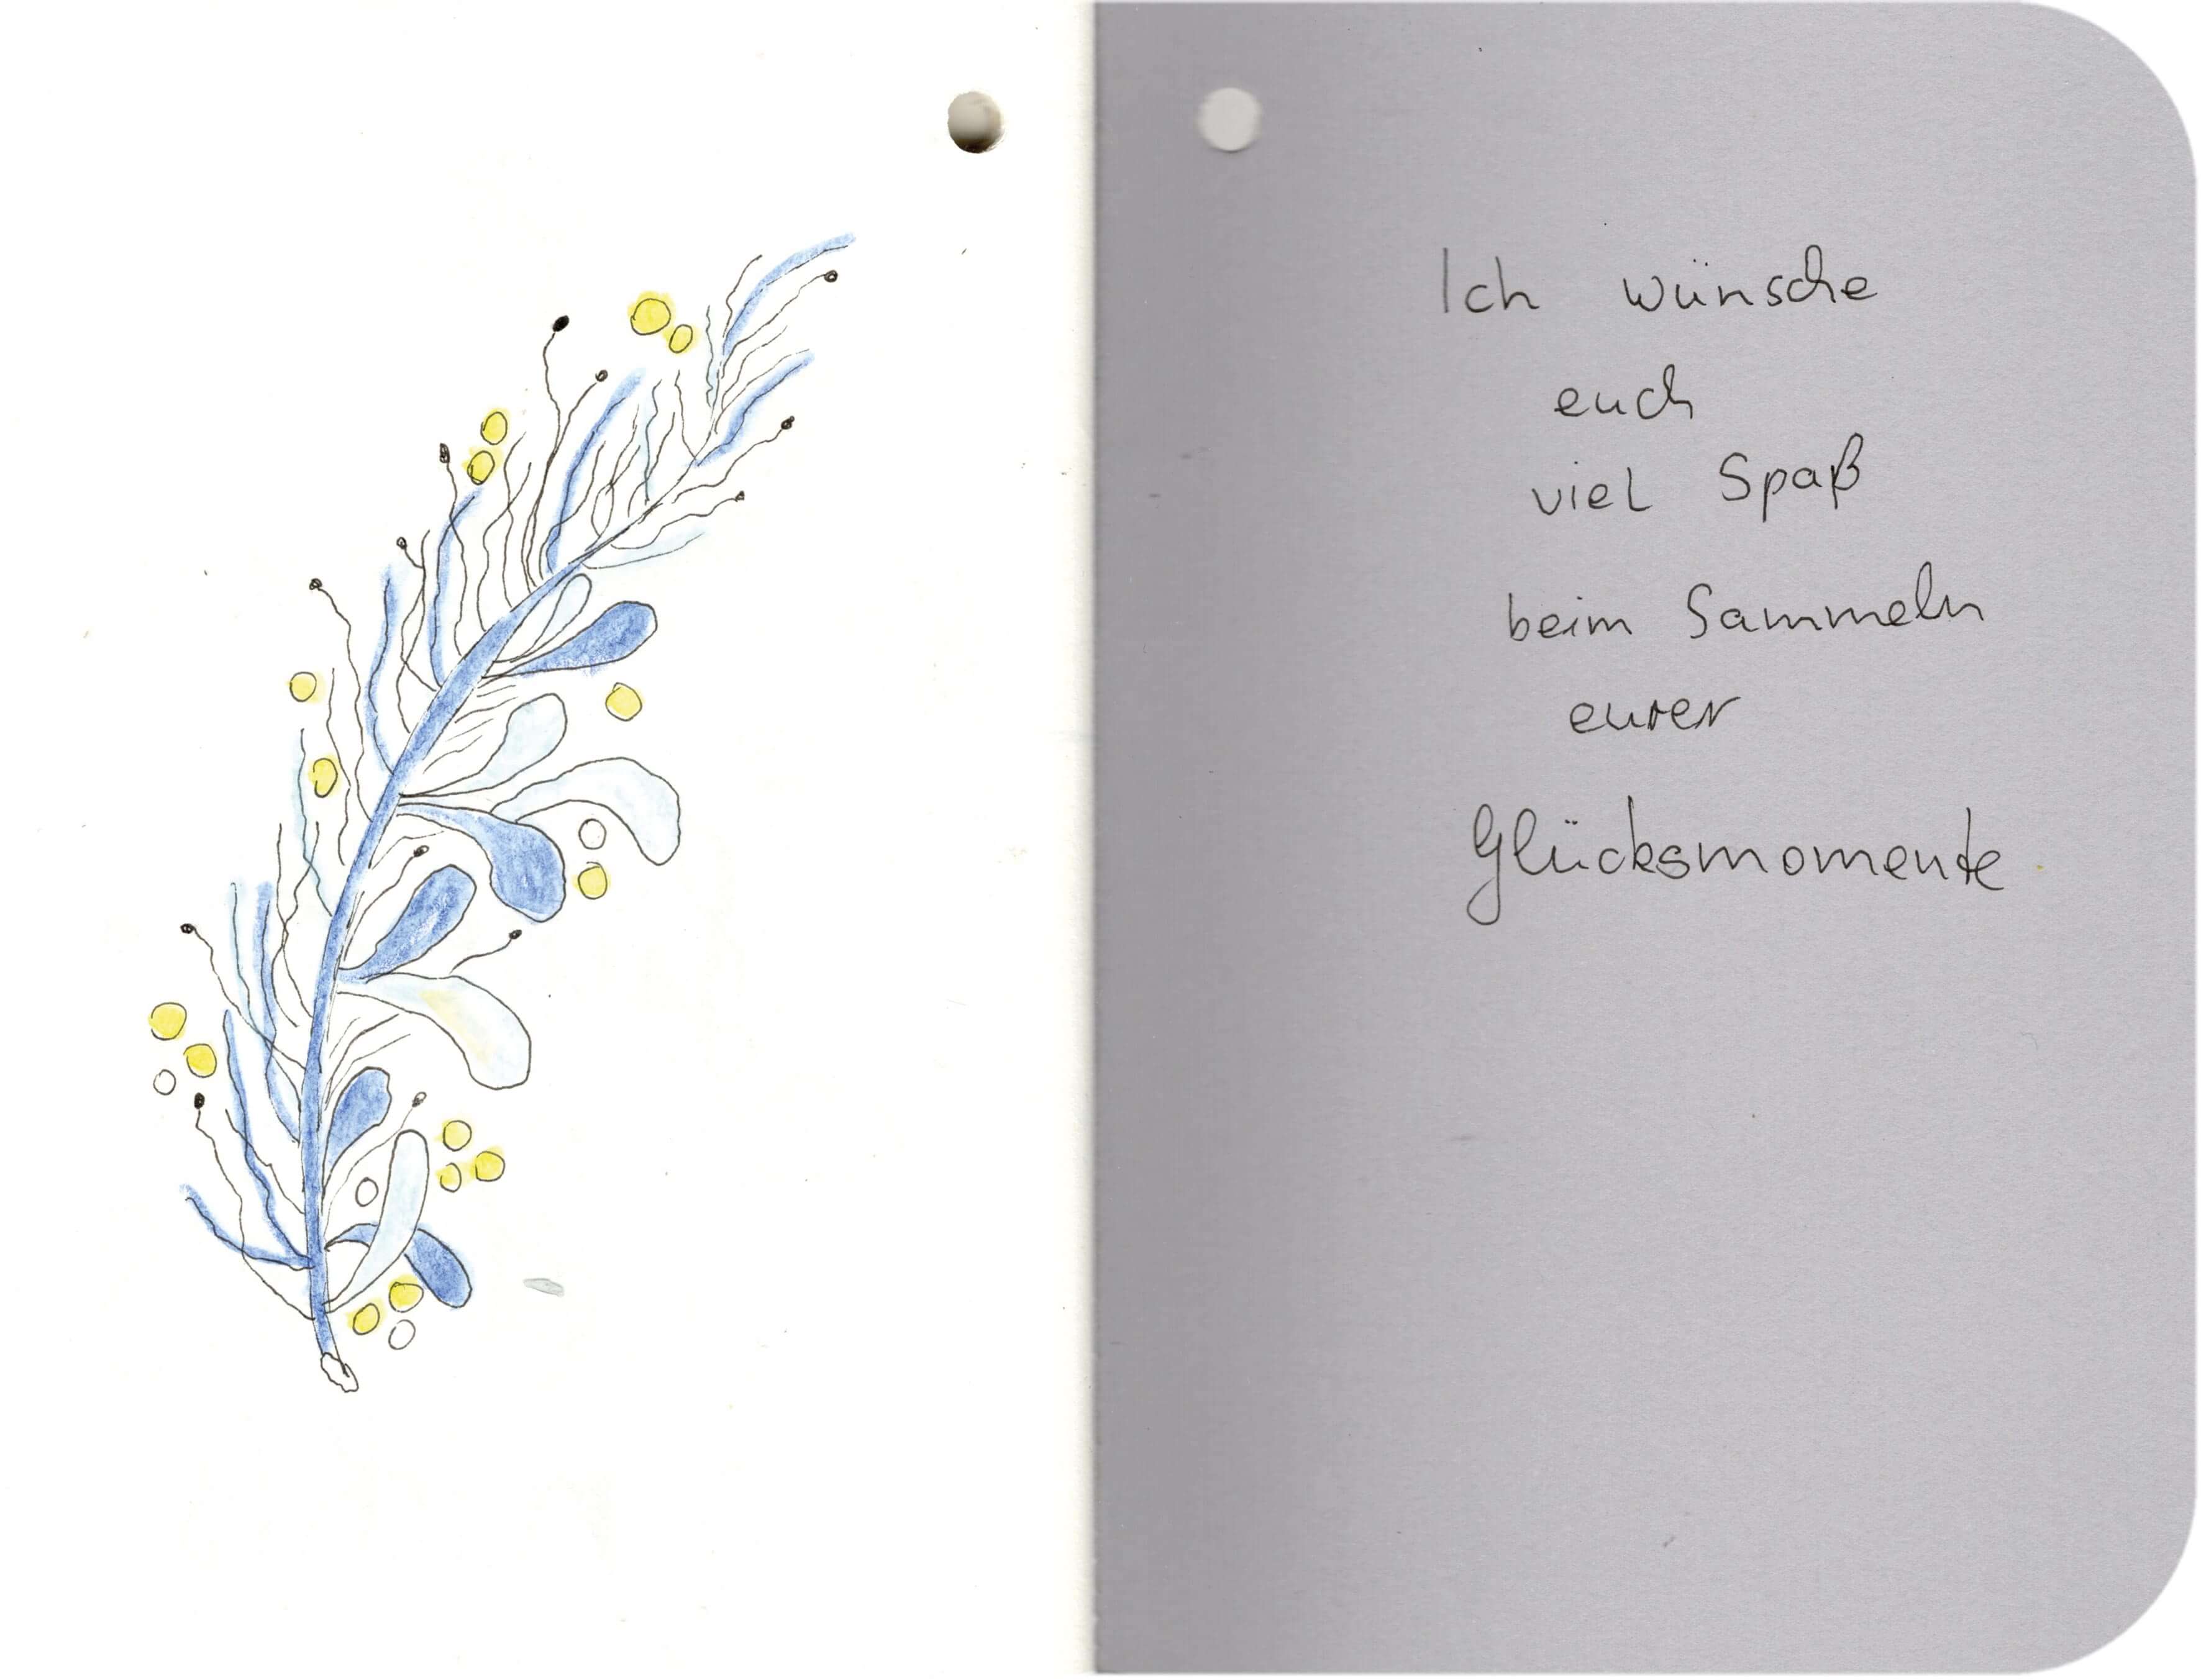 Ich wünsche
euch
viel Spaß
beim Sammeln
eurer
Glücksmomente